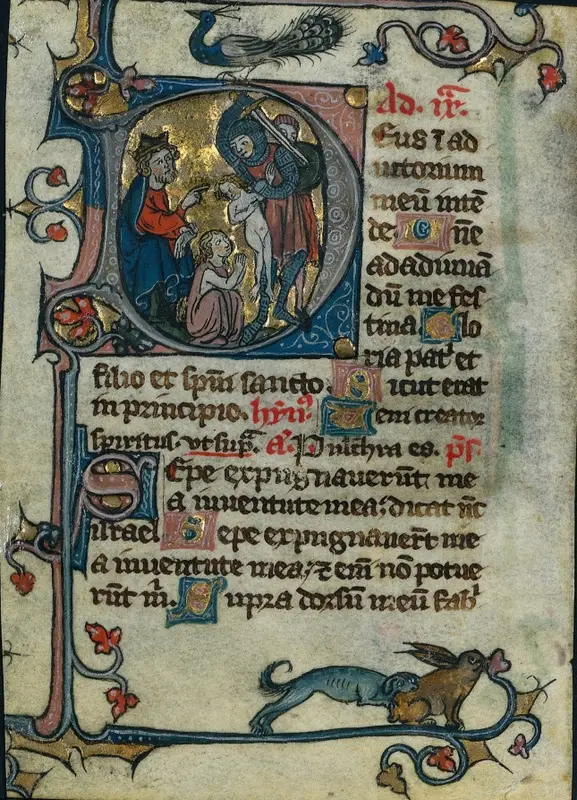 Ad. ix.
Deus ī ad
iutorium
meū intē
de Dn̄e
ad adiuuā
dū me fes
tina Glo
ria pat̉ et
filio et sp̄ui sancto. Sicut erat
in principio. hȳn᷒ Veni creator
spiritus. vt sup̄. a᷒. Pulchra es. p̄s
Sepe expugnauerūt me
a iuuentute mea: dicat nūc
israel Sepe expugnauer̄t me
a iuuentute mea: ⁊ em̄ nō potue
rūt m̄. Supra dorsū meū fab̉